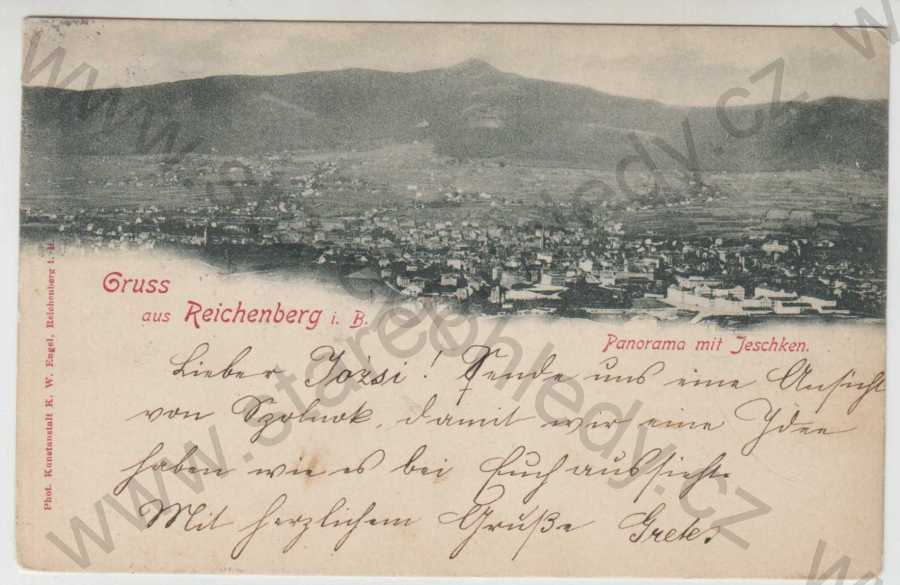 Gruss
aus Reichenberg i. B.
Panorama mit Jeschken.
Lieber Jozsi! Sende uns eine Ansicht
von Szolnok, damit wir eine Idee
haben wie es bei Euch aussieht.
Mit herzlichem Gruße Grete.
Phot. Kunstanstalt K. W. Engel, Reichenberg i. B.
www.starepohledy.cz